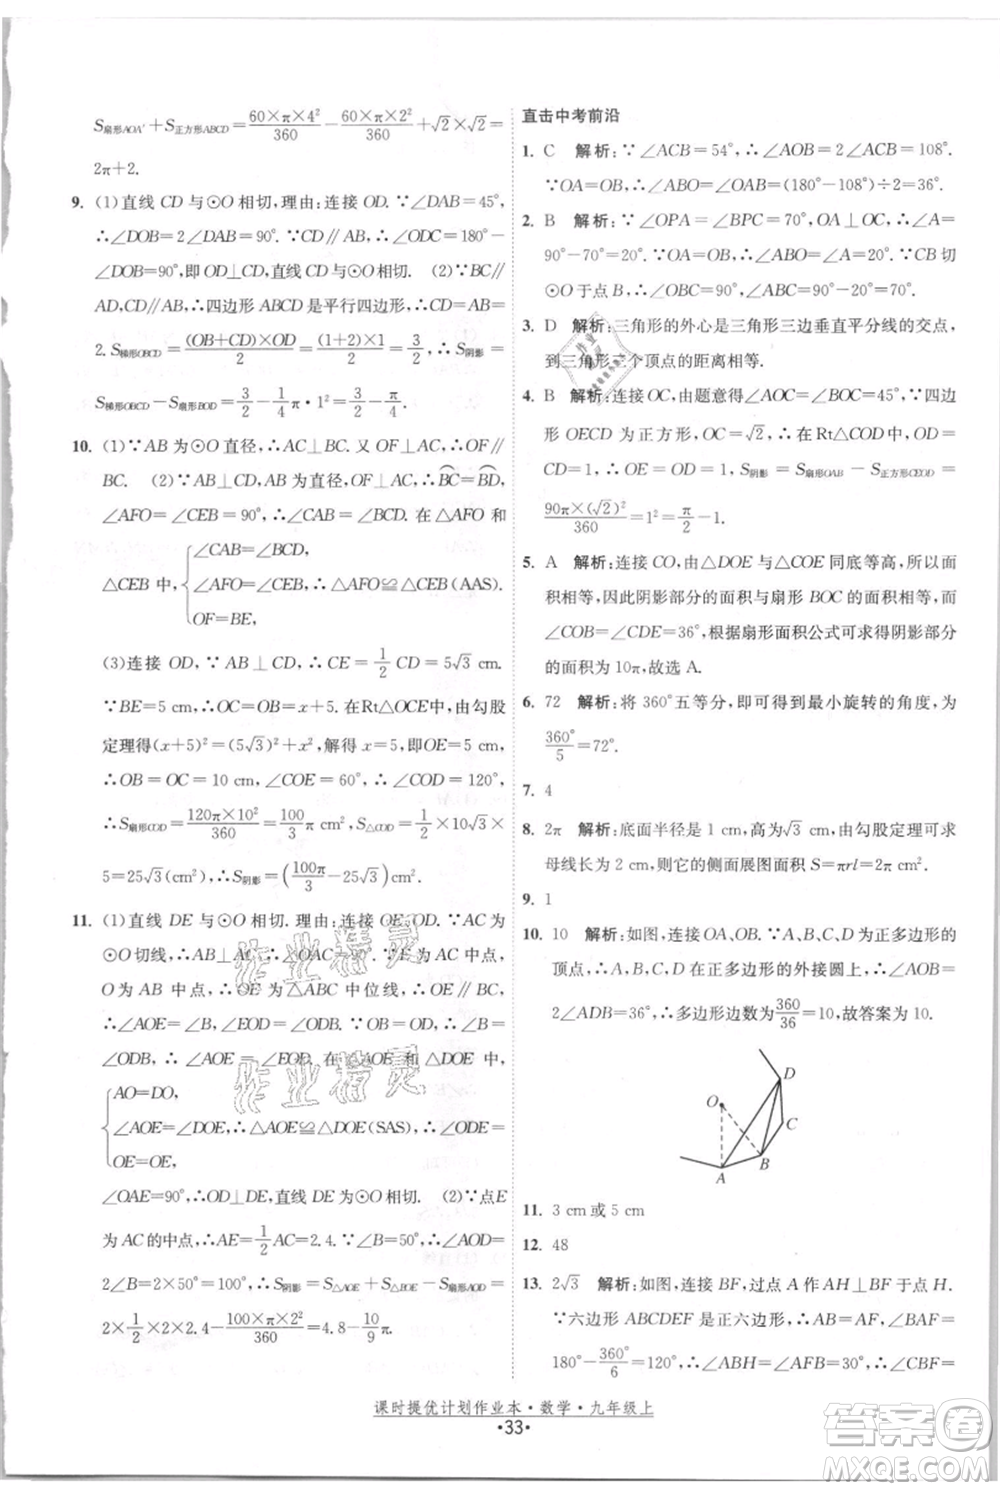 S扇形AOA′+S正方形ABCD=60×π×4²/360-60×π×2²/360+√2×√2=
2π+2.
9. (1)直线 CD 与⊙O 相切,理由:连接 OD.∵∠DAB=45°,
∴∠DOB=2∠DAB=90°.∵CD∥AB,∴∠ODC=180°-
∠DOB=90°,即 OD⊥CD,直线 CD 与⊙O 相切. (2)∵BC∥
AD,CD∥AB,∴四边形 ABCD 是平行四边形,∴CD=AB=
2.S梯形OBCD=(OB+CD)×OD/2=(1+2)×1/2=3/2,∴S阴影=
S梯形OBCD-S扇形BOD=3/2-1/4π·1²=3/2-π/4.
10. (1)∵AB 为⊙O 直径,∴AC⊥BC.又 OF⊥AC,∴OF∥
BC. (2)∵AB⊥CD,∴⌒BC=⌒BD,
∠AFO=∠CEB=90°,∴∠CAB=∠BCD.在△AFO 和
△CEB 中,{∠CAB=∠BCD,
∠AFO=∠CEB,∴△AFO≌△CEB(AAS).
OF=BE,
(3)连接 OD,∵AB⊥CD,∴CE=1/2CD=5√3 cm.
∵BE=5 cm,∴OC=OB=x+5.在Rt△OCE中,由勾股
定理得(x+5)²=(5√3)²+x²,解得 x=5,即OE=5 cm,
∴OB=OC=10 cm,∠COE=60°,∴∠COD=120°,
∴S扇形COD=120π×10²/360=100/3π(cm²),S△COD=1/2×10√3×
5=25√3(cm²),∴S阴影=(100π/3-25√3)cm².
11. (1)直线 DE 与⊙O 相切.理由:连接 OE,OD.∵AC为
⊙O切线,∴AB⊥AC,∴∠OAC=90°.∵点E为AC中点,
O为 AB 中点,∴OE 为△ABC 中位线,∴OE∥BC,
∴∠AOE=∠B,∠EOD=∠ODB.∵OD=OB,∴∠B=
∠ODB,∴∠AOE=∠EOD.在△AOE 和△DOE 中,
{AO=DO,
∠AOE=∠DOE,∴△AOE≌△DOE(SAS),∴∠ODE=
OE=OE,
∠OAE=90°,∴OD⊥DE,直线 DE 与⊙O 相切. (2)∵点E
为 AC 的中点,∴AE=1/2AC=2.4.∵∠B=50°,∴∠AOD=
2∠B=2×50°=100°,∴S阴影=S△AOE+S△DOE-S扇形AOD=
2×1/2×2×2.4-100×π×2²/360=4.8-10/9π.
直击中考前沿
1. C 解析:∵∠ACB=54°,∴∠AOB=2∠ACB=108°.
∵OA=OB,∴∠OAB=(180°-108°)÷2=36°.
2. B 解析:∵∠OPA=∠BPC=70°,OA⊥OC,∴∠A=
90°-70°=20°.∵OA=OB,∴∠OBA=∠A=20°.∵CB 切
⊙O 于点 B,∴∠OBC=90°,∴∠ABC=70°.
3. D 解析:三角形的外心是三角形三边垂直平分线的交点,
到三角形三个顶点的距离相等.
4. B 解析:连接 OC,由题意得∠AOC=∠BOC=45°,∵四边
形 OECD 为正方形,OC=√2,∴在 Rt△COD 中,OD=
CD=1,∴OE=OD=1.S阴影=S扇形OAB-S正方形CEOD=
90π×(√2)²/360-1²=π/2-1.
5. A 解析:连接 CO,由△DOE 与△COE 同底等高,所以面
积相等,因此阴影部分的面积与扇形 BOC 的面积相等,
∠COB=∠CDE=36°,根据扇形面积公式可求得阴影部分
的面积为 10π,故选 A.
6. 72 解析:将 360°五等分,即可得到最小旋转的角度,为
360°/5=72°.
7. 4
8. 2π 解析:底面半径是 1 cm,高为√3 cm,由勾股定理可求
母线长为 2 cm,则它的侧面展图面积 S=πrl=2π cm².
9. 1
10. 10 解析:如图,连接OA,OB.∵A,B,C,D为正多边形的
顶点,∴A,B,C,D 在正多边形的外接圆上,∴∠AOB=
2∠ADB=36°,∴正多边形边数=360/36=10,故答案为 10.
D
O
C
B
A
11. 3 cm 或 5 cm
12. 48
13. 2√3 解析:如图,连接 BF,过点 A 作 AH⊥BF 于点 H.
∵六边形 ABCDEF 是正六边形,∴AB=AF,∠BAF=
180°-360°/6=120°,∴∠ABH=∠AFB=30°,∴∠CBF=
课时提优计划作业本·数学·九年级上
·33·
作业精灵
作业精灵
答案圈
MXQE.COM